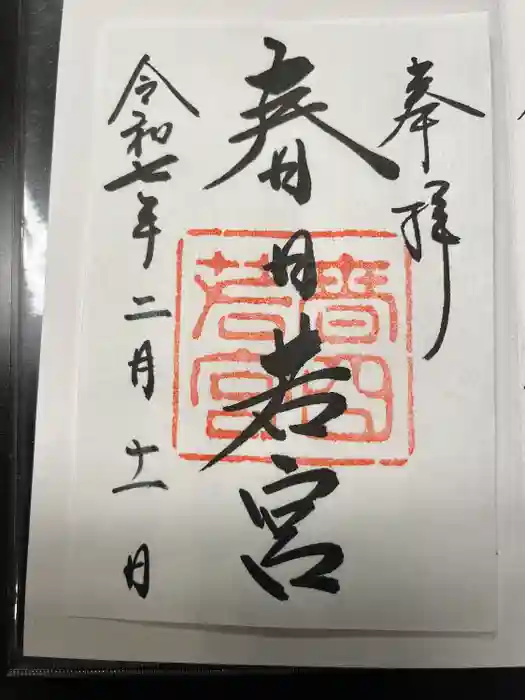 奉拝
春日若宮
春日
若宮
令和七年二月十一日